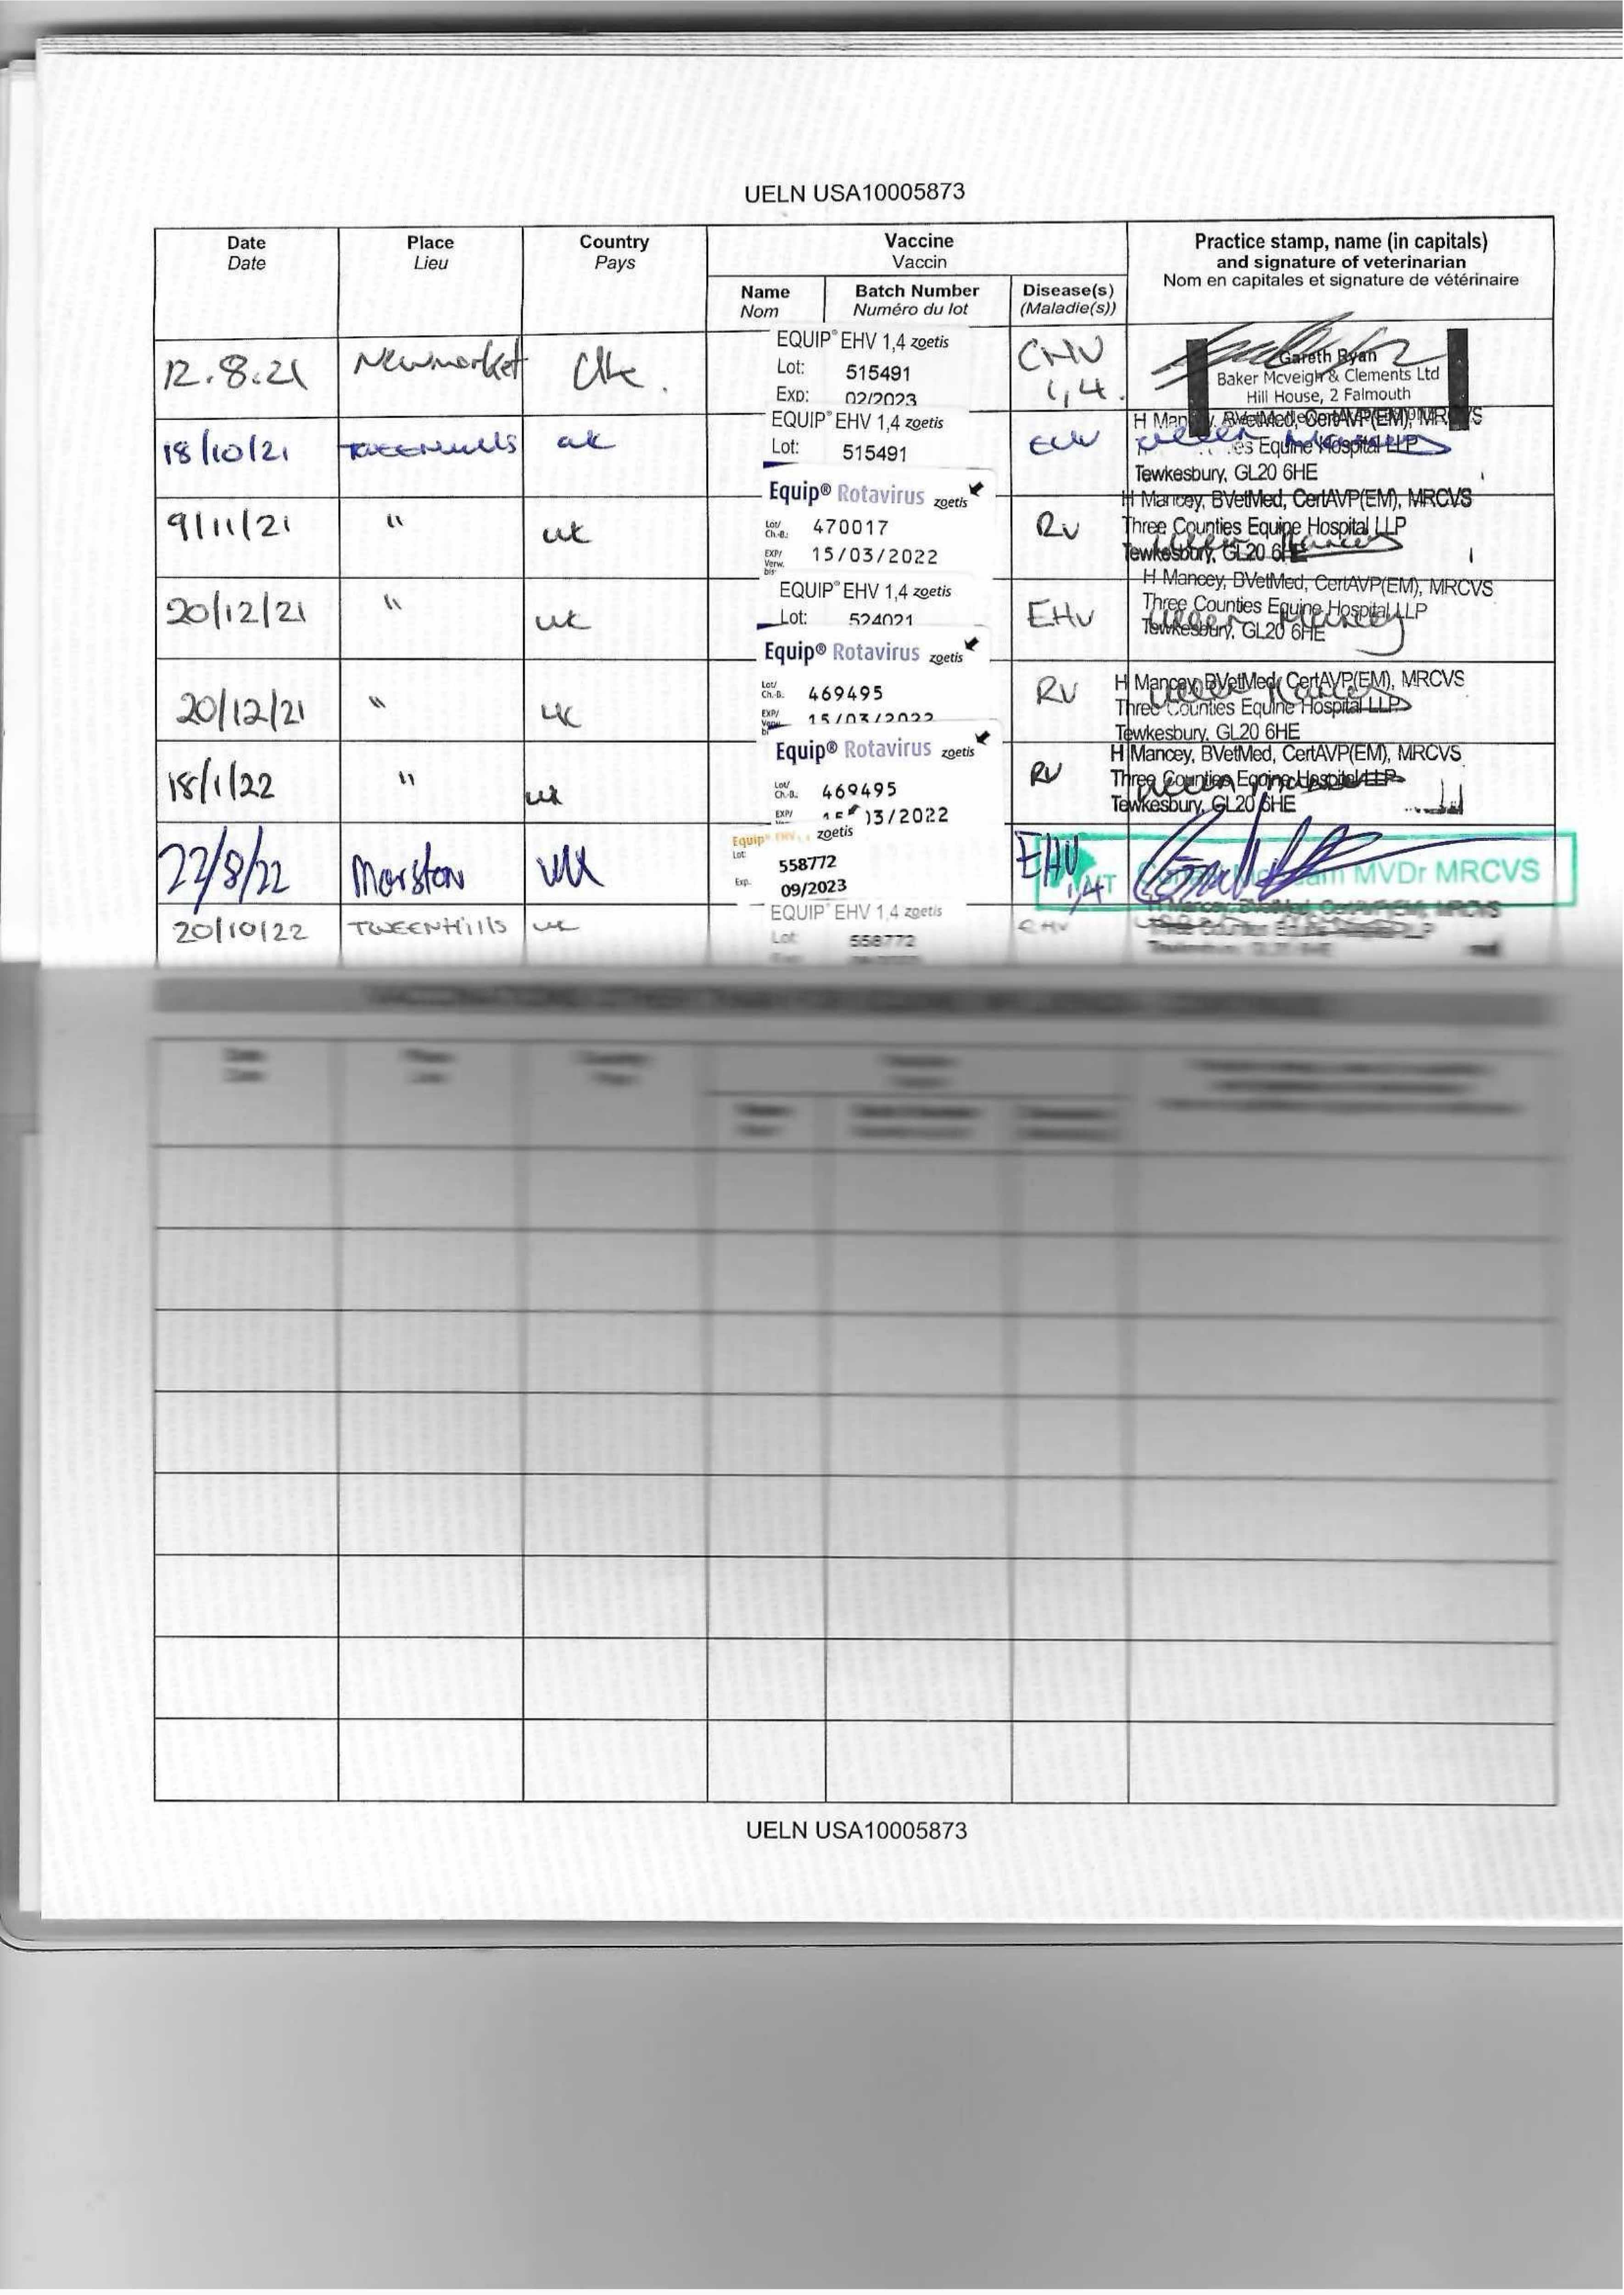 UELN USA10005873
Date Place Country Vaccine Practice stamp, name (in capitals)
Date Lieu Pays Vaccin and signature of veterinarian
Nom en capitales et signature de vétérinaire
Name Batch Number Disease(s)
Nom Numéro du lot (Maladie(s))
EQUIP® EHV 1,4 zoetis
12.8.21 Newmarket Uk. Lot: 515491 EHV Gareth Ryan
Exp: 02/2023 1,4. Baker Mcveigh & Clements Ltd
Hill House, 2 Falmouth
EQUIP® EHV 1,4 zoetis H Mancey, BVetMed, CertAVP(EM), MRCVS
18/10/21 TWEENHills uk Lot: 515491 EHV es Equine Hospital LLP
Tewkesbury, GL20 6HE
Equip® Rotavirus zoetis H Mancey, BVetMed, CertAVP(EM), MRCVS
9/11/21 " uk Lot/ Ch.-B.: 470017 RV Three Counties Equine Hospital LLP
EXP/ Verw. bis: 15/03/2022 Tewkesbury, GL20 6HE
EQUIP® EHV 1,4 zoetis H Mancey, BVetMed, CertAVP(EM), MRCVS
20/12/21 " uk Lot: 524021 EHV Three Counties Equine Hospital LLP
Tewkesbury, GL20 6HE
Equip® Rotavirus zoetis
20/12/21 " uk Lot/ Ch.-B. 469495 RV H Mancey, BVetMed, CertAVP(EM), MRCVS
EXP/ 15/03/2022 Three Counties Equine Hospital LLP
Tewkesbury, GL20 6HE
Equip® Rotavirus zoetis H Mancey, BVetMed, CertAVP(EM), MRCVS
18/1/22 " uk Lot/ Ch.-B. 469495 RV Three Counties Equine Hospital LLP
EXP/ 03/2022 Tewkesbury, GL20 6HE
Equip® EHV zoetis
22/8/22 Marston UK Lot: 558772 EHV 1,4 MVDr MRCVS
Exp. 09/2023
EQUIP® EHV 1,4 zoetis
20/10/22 TWEENHills uk Lot: 558772 EHV
UELN USA10005873